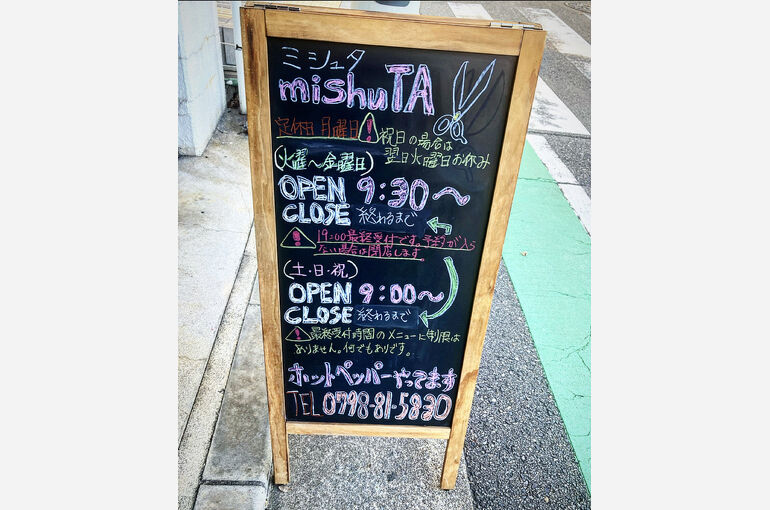 ミシュタ
mishuTA
定休日 月曜日! 祝日の場合は
翌日火曜日お休み
(火曜～金曜日)
OPEN 9:30～
CLOSE 終わるまで
! 19:00最終受付です。予約が入ら
ない場合は閉店します
(土・日・祝)
OPEN 9:00～
CLOSE 終わるまで
! 最終受付時間のメニューに制限は
ありません。何でもありです。
ホットペッパーやってます
TEL 0798-81-5830